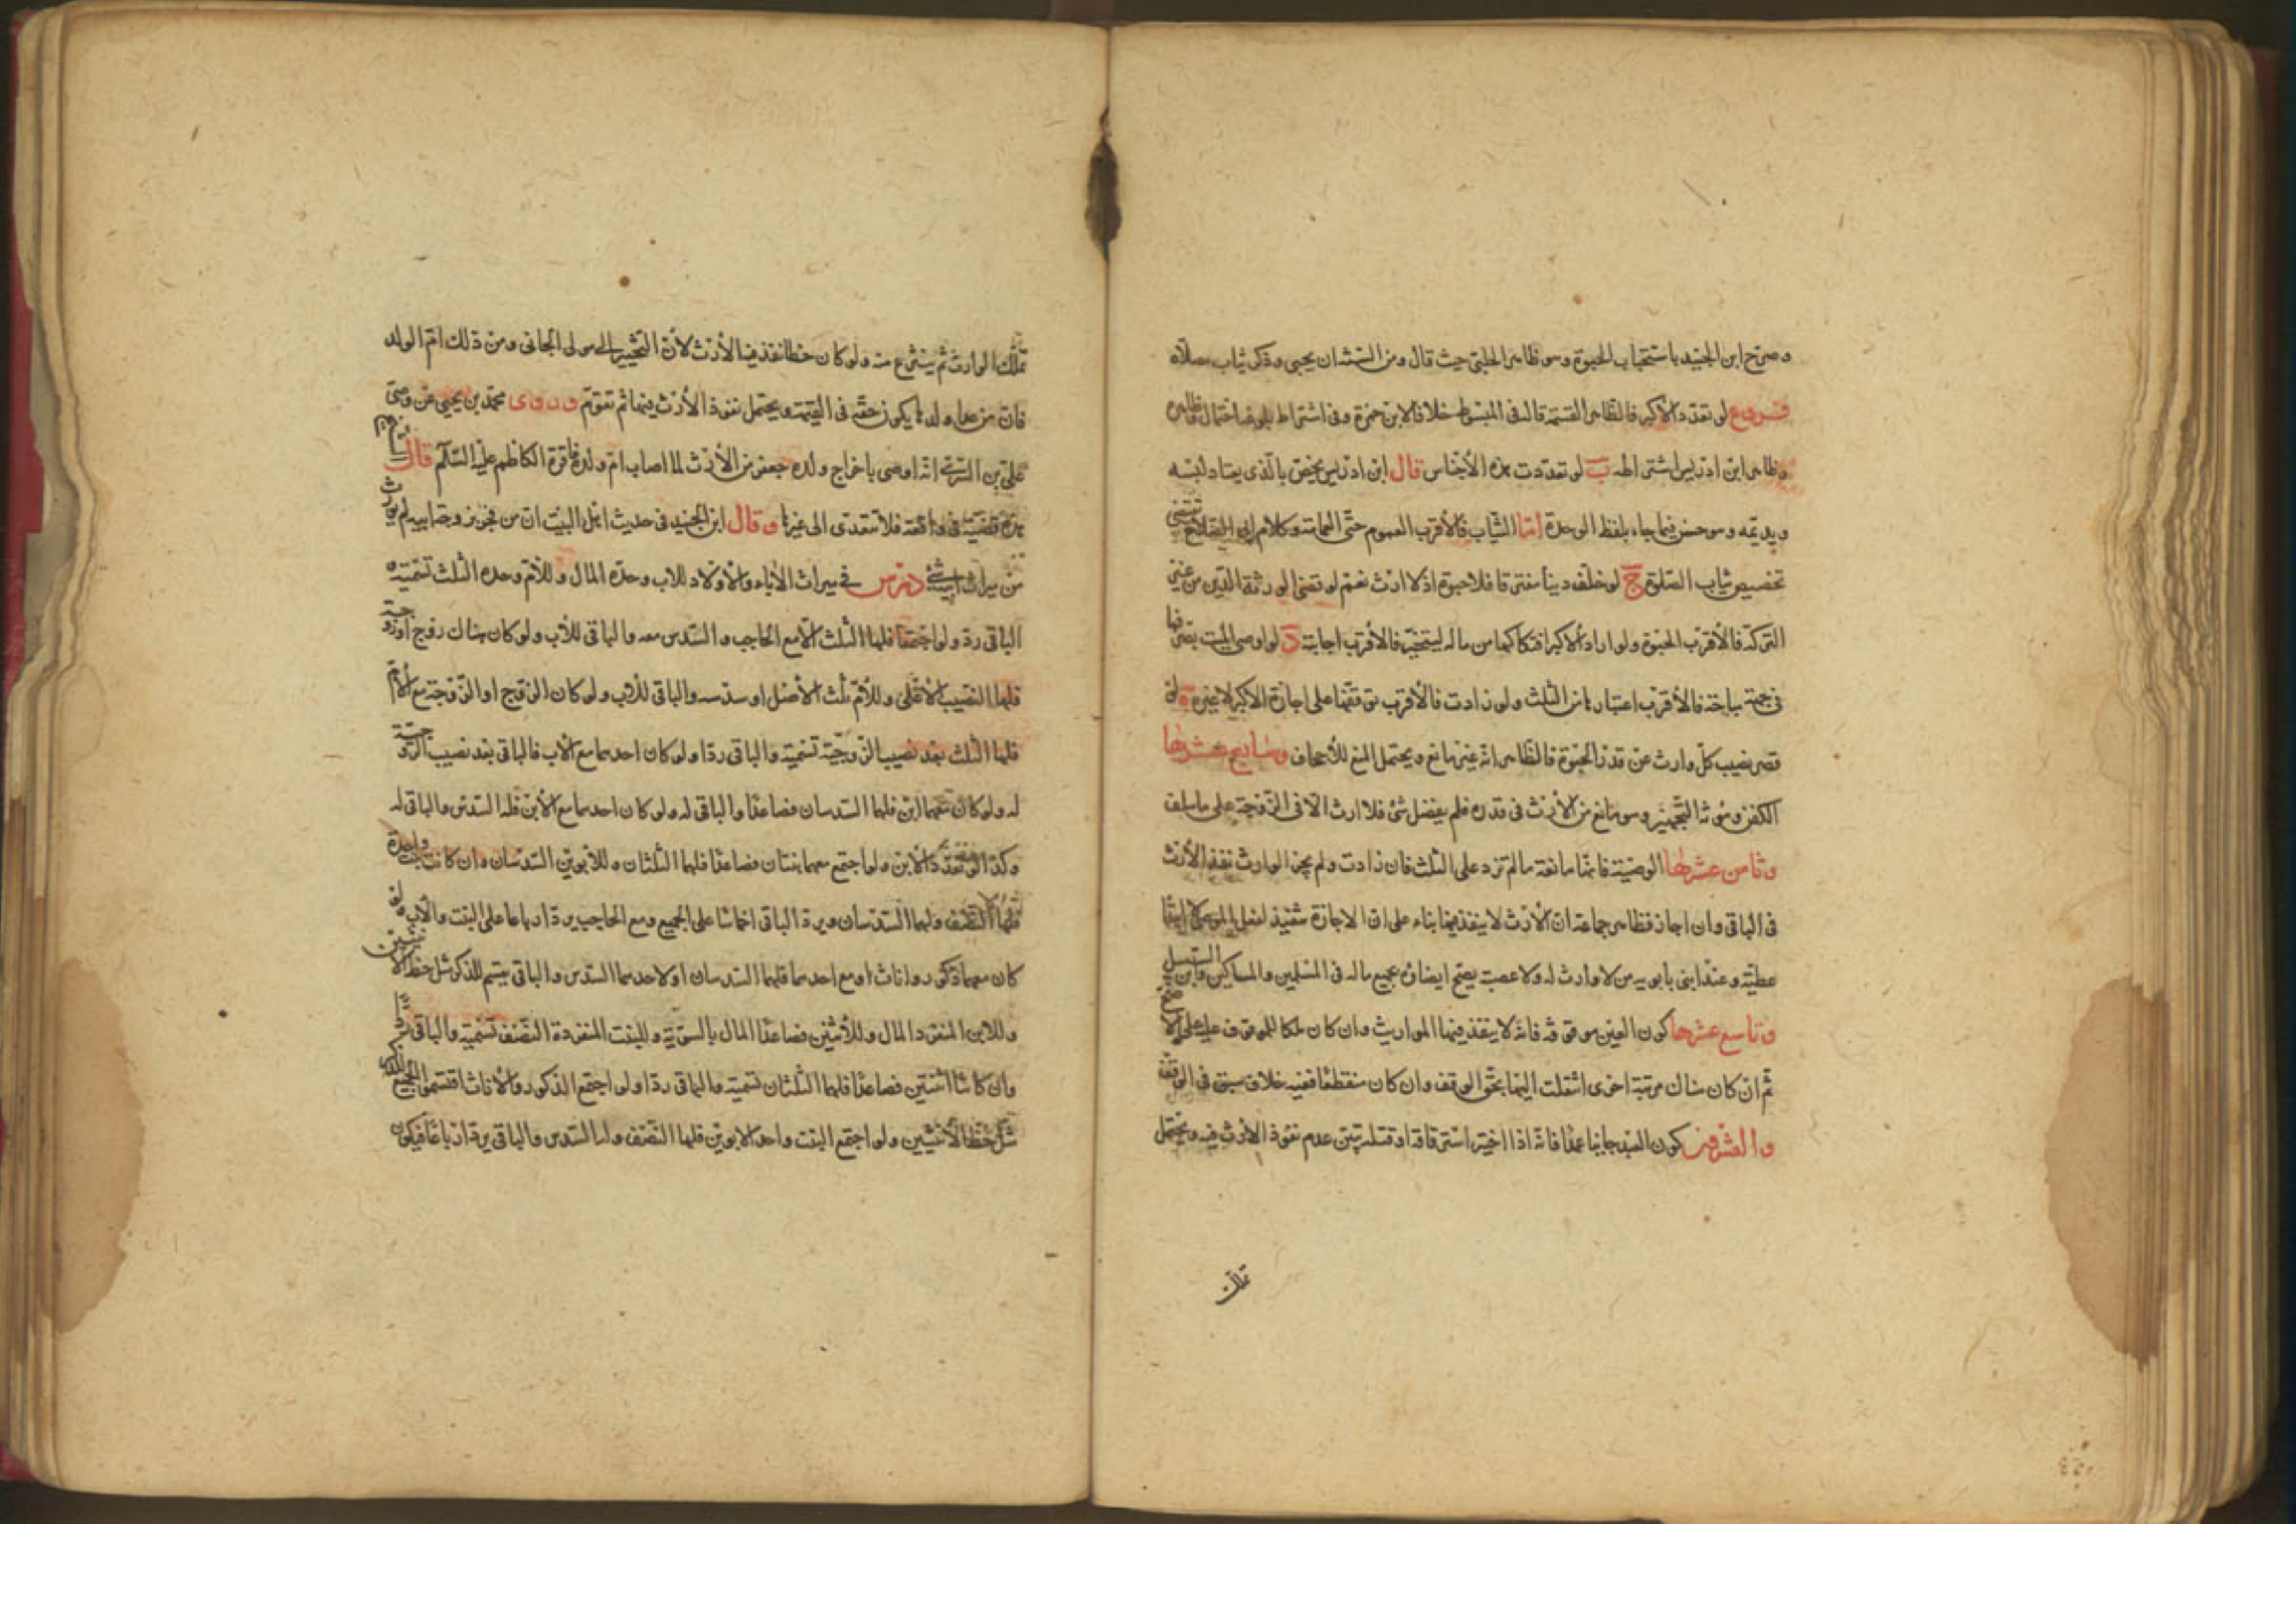 وصرّح ابن الجنيد باستحباب الحبوة وهو ظاهر الحلبي حيث قال ومن السنة ان يحبى وذكر ثياب مصلاه
فروع لو تعدد الاكبر فالظاهر القسمة قاله فى المبسوط خلافا لابن حمزة وفى اشتراط بلوغه احتمال
وظاهر ابن ادريس اشتراطه ب لو تعددت هذه الأجناس قال ابن ادريس يخصّ بالّذى يعتاد لبسه
ويديمه وهو حسن فيما جاء بلفظ الوحدة امّا الثّياب فالأقرب العموم حتّى العمامة وكلام ابى الصلاح يقتضى
تخصيص ثياب الصّلوة ج لو خلّف دينا مستغرقا فلا حبوة اذ لا ارث نعم لو قضى الورثة الدّين من غير
التركة فالأقرب الحبوة ولو اراد الاكبر افتكاكها من ماله ليستحبّه فالأقرب اجابته د لو اوصى الميت بصرفها
فى جهة مباحة فالأقرب اعتبارها من الثلث ولو زادت فالأقرب توقفها على اجازة الاكبر لا غيره ه لو
قصر نصيب كلّ وارث عن قدر الحبوة فالظّاهر انّه غير مانع ويحتمل المنع للأجحاف وسابع عشرها
الكفن ومؤنة التّجهيز وهو مانع من الأرث فى قدره فلم يفضل شئ فلا ارث الّا فى الزّوجة على ما سلف
وثامن عشرها الوصيّة فانّها مانعة ما لم تزد على الثلث فان زادت ولم يجز الوارث نفذ الأرث
فى الباقى وان اجاز فظاهر جماعة انّ الأرث لا ينفذ فيها بناء على انّ الاجازة تنفيذ لفعل الموصى لا ابتداء
عطيّة وعند ابنى بابويه من لا وارث له ولا عصبة يصحّ ايصاؤه بجميع ماله فى المسلمين والمساكين وابن السّبيل
وتاسع عشرها كون العين موقوفة فانّه لا ينفذ فيها المواريث وان كان ملكا للموقوف عليه على الاصحّ
ثمّ ان كان هناك مرتبة اخرى انتقلت اليها بحقّ الوقف وان كان منقطعا ففيه خلاف سبق فى الوقف
والعشرون كون العبد جانيا عمدا فانّه اذا اختير استرقاقه او قتله تبيّن عدم نفوذ الأرث فيه ويحتمل
تملّك
تملّك الوارث ثم ينتزع منه ولو كان خطا نفذ فيه الأرث لأنّ التخيير الى مولى الجانى ومن ذلك امّ الولد
فانّ من عدا ولدها يكون حقّه فى القيمة ويحتمل نفوذ الأرث فيها ثم تقوّم وروى محمّد بن يحيى عن وصىّ
علىّ بن السّرى انّه اوصى باخراج ولده جعفر من الأرث لما اصاب امّ ولده فاقرّه الكاظم عليه السّلام قال الشيخ
هذه قضيّة فى واقعة فلا تتعدّى الى غيرها وقال ابن الجنيد فى حديث اهل البيت انّ من فجر بزوجة ابيه لم يورث
من ميراث ابيه شئ درس فى ميراث الأباء والأولاد للاب وحده المال وللأمّ وحدها الثلث تسمية
الباقى ردّ ولو اجتمعا فلها الثلث الّا مع الحاجب والسّدس معه والباقى للأب ولو كان هناك زوج او زوجة
فلهما النّصيب الأعلى وللأمّ ثلث الأصل او سدسه والباقى للأب ولو كان الزّوج او الزّوجة مع الأمّ
فلها الثلث بعد نصيب الزّوجيّة تسمية والباقى ردّا ولو كان احدهما مع الأب فالباقى بعد نصيب الزّوجيّة
له ولو كان معهما ابن فلهما السّدسان فصاعدا والباقى له ولو كان احدهما مع الأبن فله السّدس والباقى له
وكذا لو تعدّد الأبن ولو اجتمع معهما بنتان فصاعدا فلهما الثلثان وللأبوين السّدسان وان كانت بنت واحدة
فلها النّصف ولهما السّدسان ويردّ الباقى اخماسا على الجميع ومع الحاجب يردّ ارباعا على البنت والأب ولو
كان معهما ذكور واناث او مع احدهما فلهما السّدسان او لاحدهما السّدس والباقى يقسم للذكر مثل حظّ الأنثيين
وللابن المنفرد المال وللأثنين فصاعدا المال بالسّويّة وللبنت المنفردة النّصف تسمية والباقى ردّا
وان كانتا اثنتين فصاعدا فلهما الثلثان تسمية والباقى ردّا ولو اجتمع الذكور والأناث اقتسموا الجميع للذكر
مثل حظّ الأنثيين ولو اجتمع البنت واحد الابوين فلها النّصف وله السّدس والباقى يردّ ارباعا فيكون